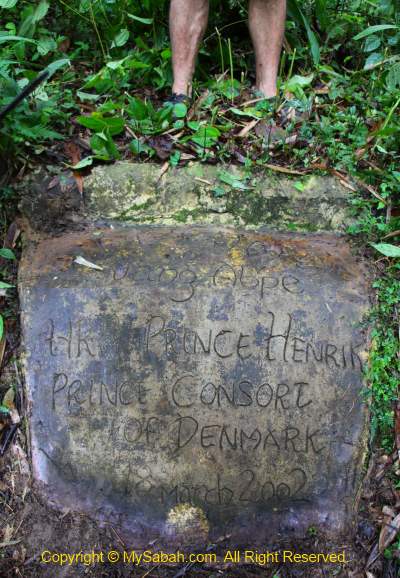 HRH PRINCE HENRIK
PRINCE CONSORT
OF DENMARK
March 2002
Copyright © MySabah.com. All Right Reserved.